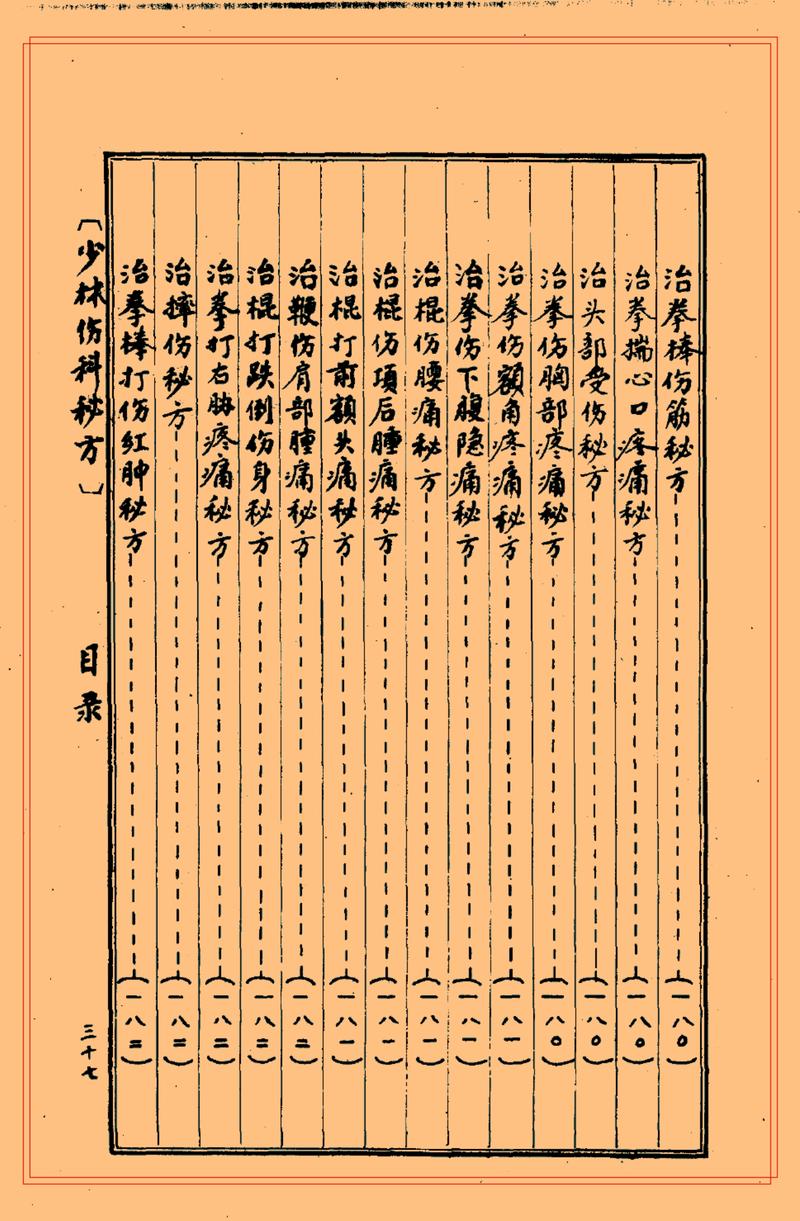 治拳棒伤筋秘方（一八〇）
治拳揣心口疼痛秘方（一八〇）
治头部受伤秘方（一八〇）
治拳伤胸部疼痛秘方（一八〇）
治拳伤额角疼痛秘方（一八一）
治拳伤下腹隐痛秘方（一八一）
治棍伤腰痛秘方（一八一）
治棍伤項后腫痛秘方（一八一）
治棍打前额头痛秘方（一八一）
治鞭伤肩部腫痛秘方（一八二）
治棍打跌倒伤身秘方（一八二）
治拳打右胁疼痛秘方（一八二）
治摔伤秘方（一八二）
治拳棒打伤红肿秘方（一八二）
〔少林伤科秘方〕
目录
三十七